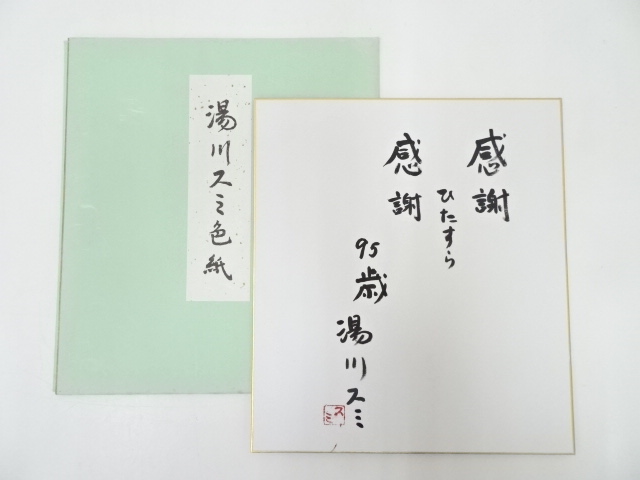 湯川スミ色紙
感謝
ひたすら
感謝
95歳
湯川スミ
スミ